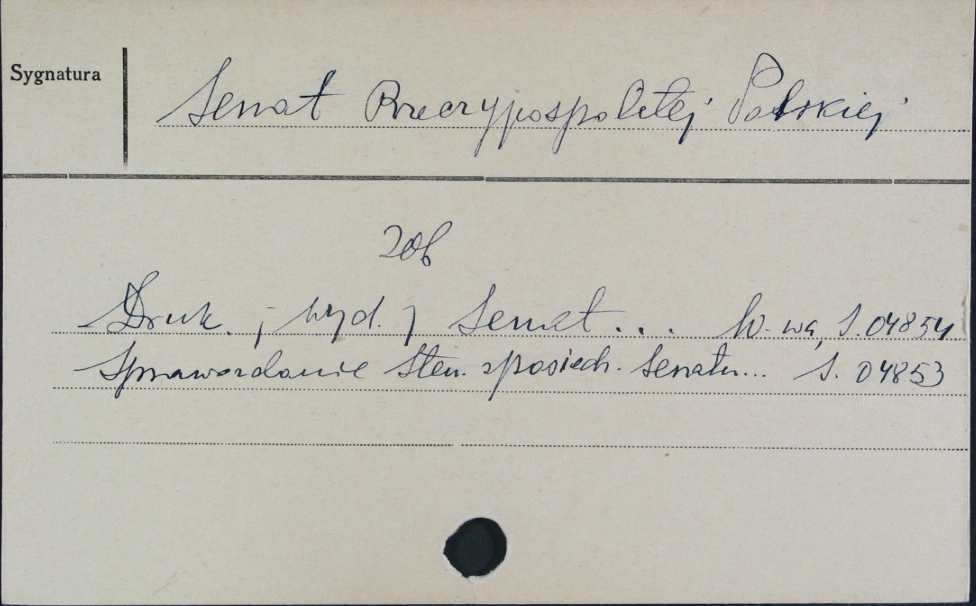 Sygnatura
Senat Rzeczypospolitej Polskiej
zob
Druk. ; wyd. ; Senat... W-wa, S.04854
Sprawozdanie sten. z posiedz. Senatu... S. 04853